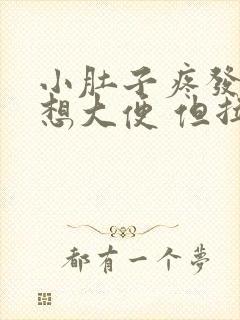 小肚子疼發
想大便 但拉
都有一个夢